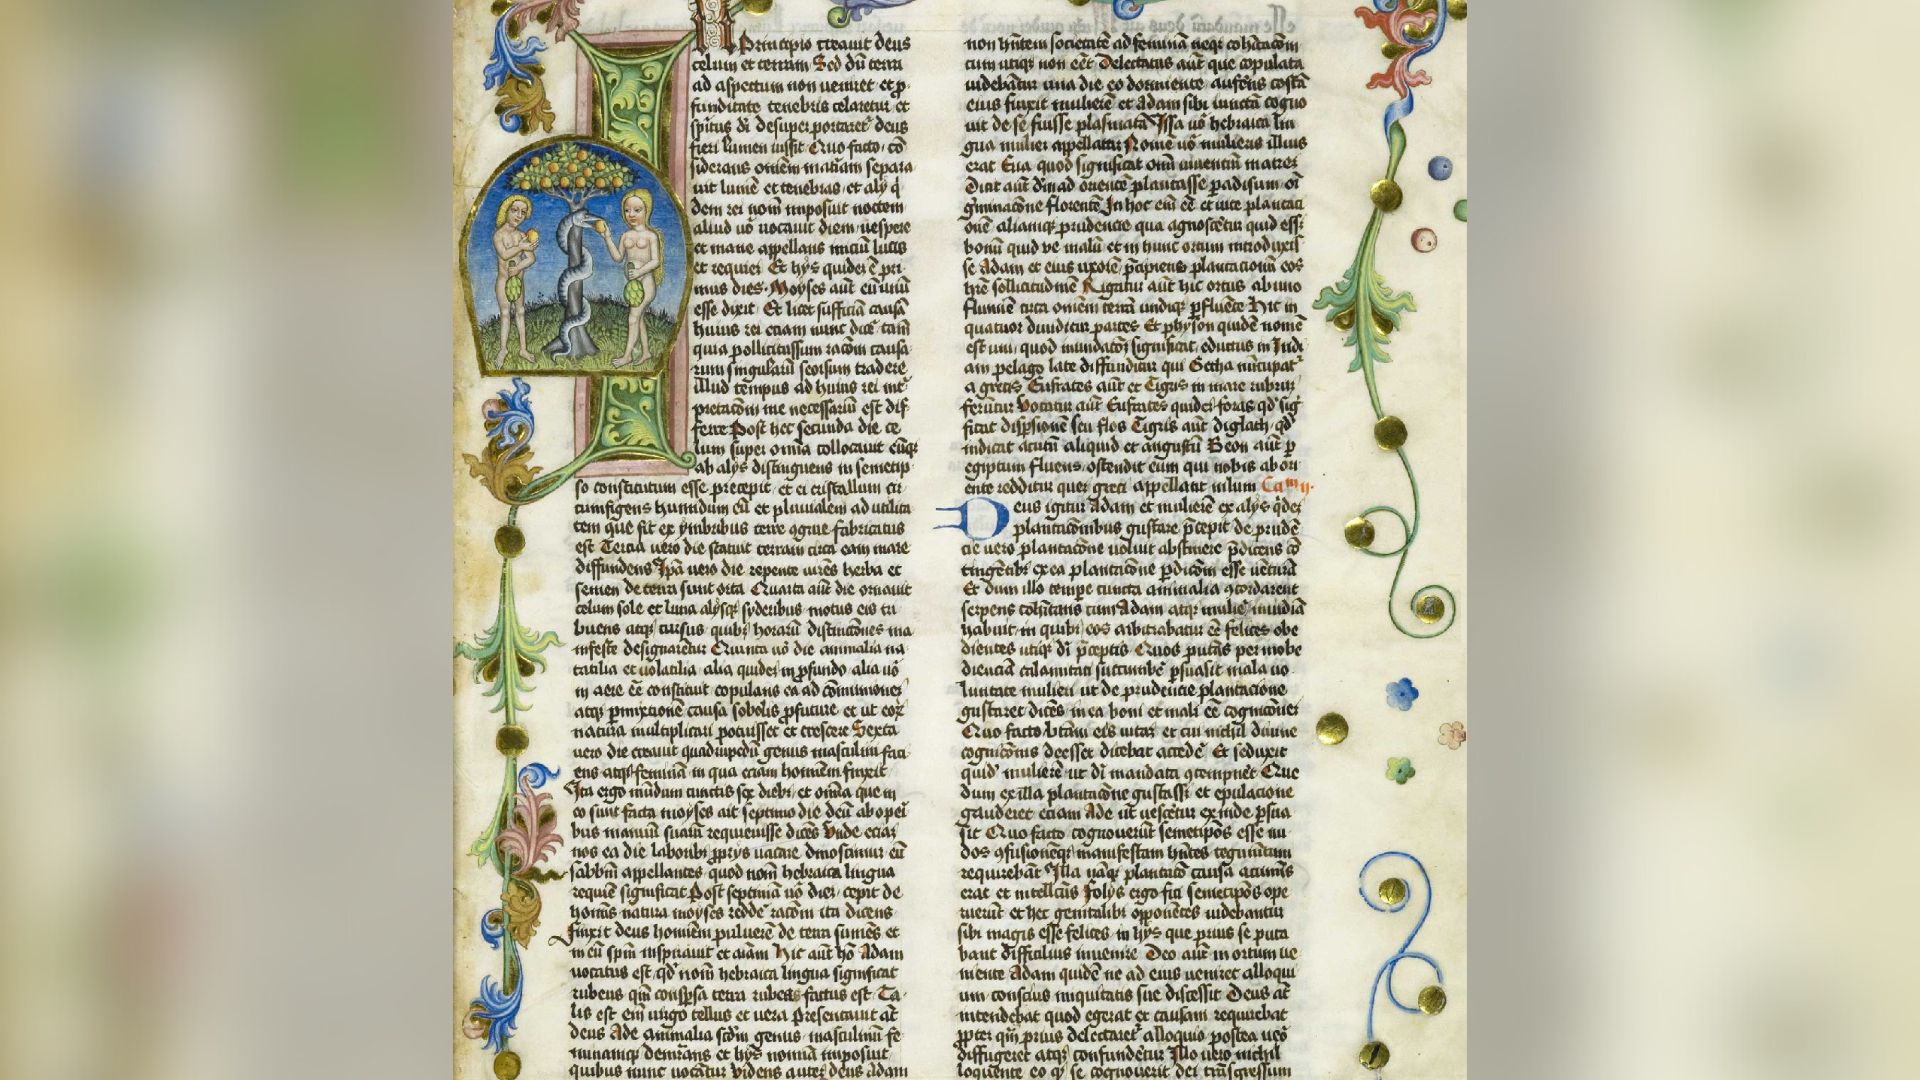 In Principio creavit deus
celum et terram Sed dū terra
ad aspectum non veniret et ꝓ
funditate tenebris celaretur et
spūtus dī desuper portaret deus
fieri lumen iussit Quo facto cō
siderans omēm mātiam separa
vit lumē et tenebras et alij qͥ
dem rei nomē imposuit noctem
aliud vō vocavit diem vespere
et mane appellans iniciū lucis
et requiei Et hijs quidē ē pri
mus dies Moyses aūt eū unū
esse dixit Et licet sufficiā causā
huius rei eciam nunc dicē tamē
quia pollicitus sum racōm causa
rum singularū seorsum tradere
illud tempus ad huius rei int̄
pretacōm me necessariū est dif
ferre Post hec secunda die ce
lum super omīa collocavit eūqꝫ
ab alijs distinguens in semetip
so constitutum esse precepit et ei cristallum cir
cumfigens humidum eū et pluvialem ad utilita
tem que fit ex ymbribus terre ꝯgrue fabricatus
est Tercia vero die statuit terram circa eam mare
diffundens Ipā vero die repente vires herba et
semen de terra sunt orta Quarta aūt die ornavit
celum sole et luna alijsqꝫ syderibus motus eis tri
buens atqꝫ cursus quibꝫ horarū distinctōnes ma
nifeste designarētur Quinta vō die animalia na
tatilia et volatilia alia quidē in ꝓfundo alia vō
in aere eē constituit copulans ea ad cōmunionē
atqꝫ ꝑmixtionē causa sobolis ꝓfuture et ut eoꝝ
natura multiplicari potuisset et crescere Sexta
vero die creavit quadrupedū genus masculū faci
ens atqꝫ feminā in qua eciam hominem finxit
Ita ergo mūdum cunctis sex diebꝫ et omīa que in
eo sunt facta moyses ait septimo die deū ab opeī
bus manuū suarū requievisse dicēs Unde eciam
nos ea die laboribꝫ ꝓprijs vacare dinoscimur eū
sabbm̄ appellantes quod nom̄ hebraica lingua
requiē significat Post septimā vō diē cepit de
homīs natura moyses reddē racōm ita dicens
finxit deus hominem pulverē de terra sumēs et
in eū spm̄ inspiravit et aīam Hic aūt hō Adam
vocatus est qd̄ nom̄ hebraica lingua significat
rubeus qm̄ conspsa terra rubea factus est Ta
lis est em̄ virgo tellus et vera Presentavit āt
deus Ade animalia scdm̄ genus masculinū fe
mininumqꝫ demr̄ans et hijs nomīa imposuit
quibus nunc vocātur Videns autem deus Adam
non hn̄tem societatē ad feminā neqꝫ cohitacōm
cum utiqꝫ non eēt Delectatus aūt que copulata
videbātur una die eo dormiente auferēs costā
eius finxit mulierē et Adam sibi iunctā cogno
vit de se fuisse plasmatā Issa vō hebraica lin
gua mulier appellatur Nomē vō mulieris illius
erat Eva quod significat oīm viventiū matrē
Dicit aūt dm̄ ad orientē plantasse ꝑadisum oī
gīnacōne florentē In hoc em̄ eē et vite plantaci
onē aliamqꝫ prudencie qua agnoscētur quid esset
bonū quid ve malū et in hunc ortum introduxis
se Adam et eius uxorē p̄cipiens plantacionū eos
hr̄e sollicitudinē Rigatur aūt hic ortus ab uno
flumīe circa omēm terrā undiqꝫ ꝓfluēte Hic in
quatuor dividitur partes Et physon quidē nomē
est uni quod inundacōm significat eductus in Indi
am pelago late diffunditur qui Getha nūcupatᷣ
a grecis Eufrates aūt et Tigris in mare rubrū
ferūtur Vocatur aūt Eufrates quidē foras qd̄ sig
ficat dispsionē seu flos Tigris aūt diglath qd̄
indicat acutū aliquid et angustū Geon aūt ꝑ
egiptum fluens ostendit eum qui nobis ab ori
ente redditur quē greci appellant nilum Caᵐ ij.
Deus igitur Adam et mulierē ex alijs qͥdē
plantacōnibus gustare p̄cepit de prudē
cie vero plantacōne voluit abstinere p̄dicens cō
tingētibꝫ ex ea plantacōne ꝑdicōm esse venturā
Et dum illo tempe cuncta animalia ꝯcordarent
serpens cohītans cum Adam atqꝫ muliē invidiā
habuit in quibꝫ eos arbitrabatur eē felices obe
dientes utiqꝫ dī p̄ceptis Quos putās per inobe
dienciā calamitati succumbē ꝑsuasit mala vo
luntate mulieri ut de prudencie plantacione
gustaret dicēs in ea boni et mali eē cognicōnē
Quo facto btām eis vitā et cui nichil divine
cognicōnis deesset dicebat accedē Et seduxit
quidē mulierē ut dī mandata ꝯtempnēt Que
dum ex illa plantacōne gustassꝫ et epulacione
gauderet eciam Ade ut vescētur exinde ꝑsua
sit Quo facto cognoverūt semetipōs esse nu
dos ꝯfusionēqꝫ manifestam hn̄tes tegimētum
requirebāt Illa namqꝫ plantacō causa acumīs
erat et intellcūs Folijs ergo fici semetipōs ope
ruerūt et hec genitalibꝫ opponētes videbantur
sibi magis esse felices in hijs que prius se puta
bant difficilius invenire Deo aūt in ortum ve
niente Adam quidē ne ad eius veniret alloqui
um conscius iniquitatis sue discessit Deus āt
intendebat quod egerat et causam requirebat
ꝓpter qm̄ prius delectaretᷣ alloquio postea vō
diffugeret atqꝫ confundētur Illo vero nichil
loquente eo qꝫ se cognoverit dei trāsgressum